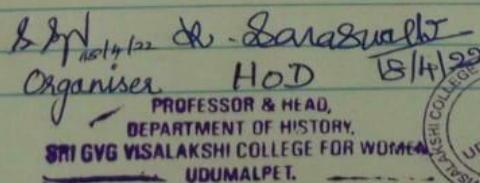 18/4/22 K. Saraswathi
Organiser HOD 18/4/22
PROFESSOR & HEAD,
DEPARTMENT OF HISTORY,
SRI GVG VISALAKSHI COLLEGE FOR WOMEN
UDUMALPET.